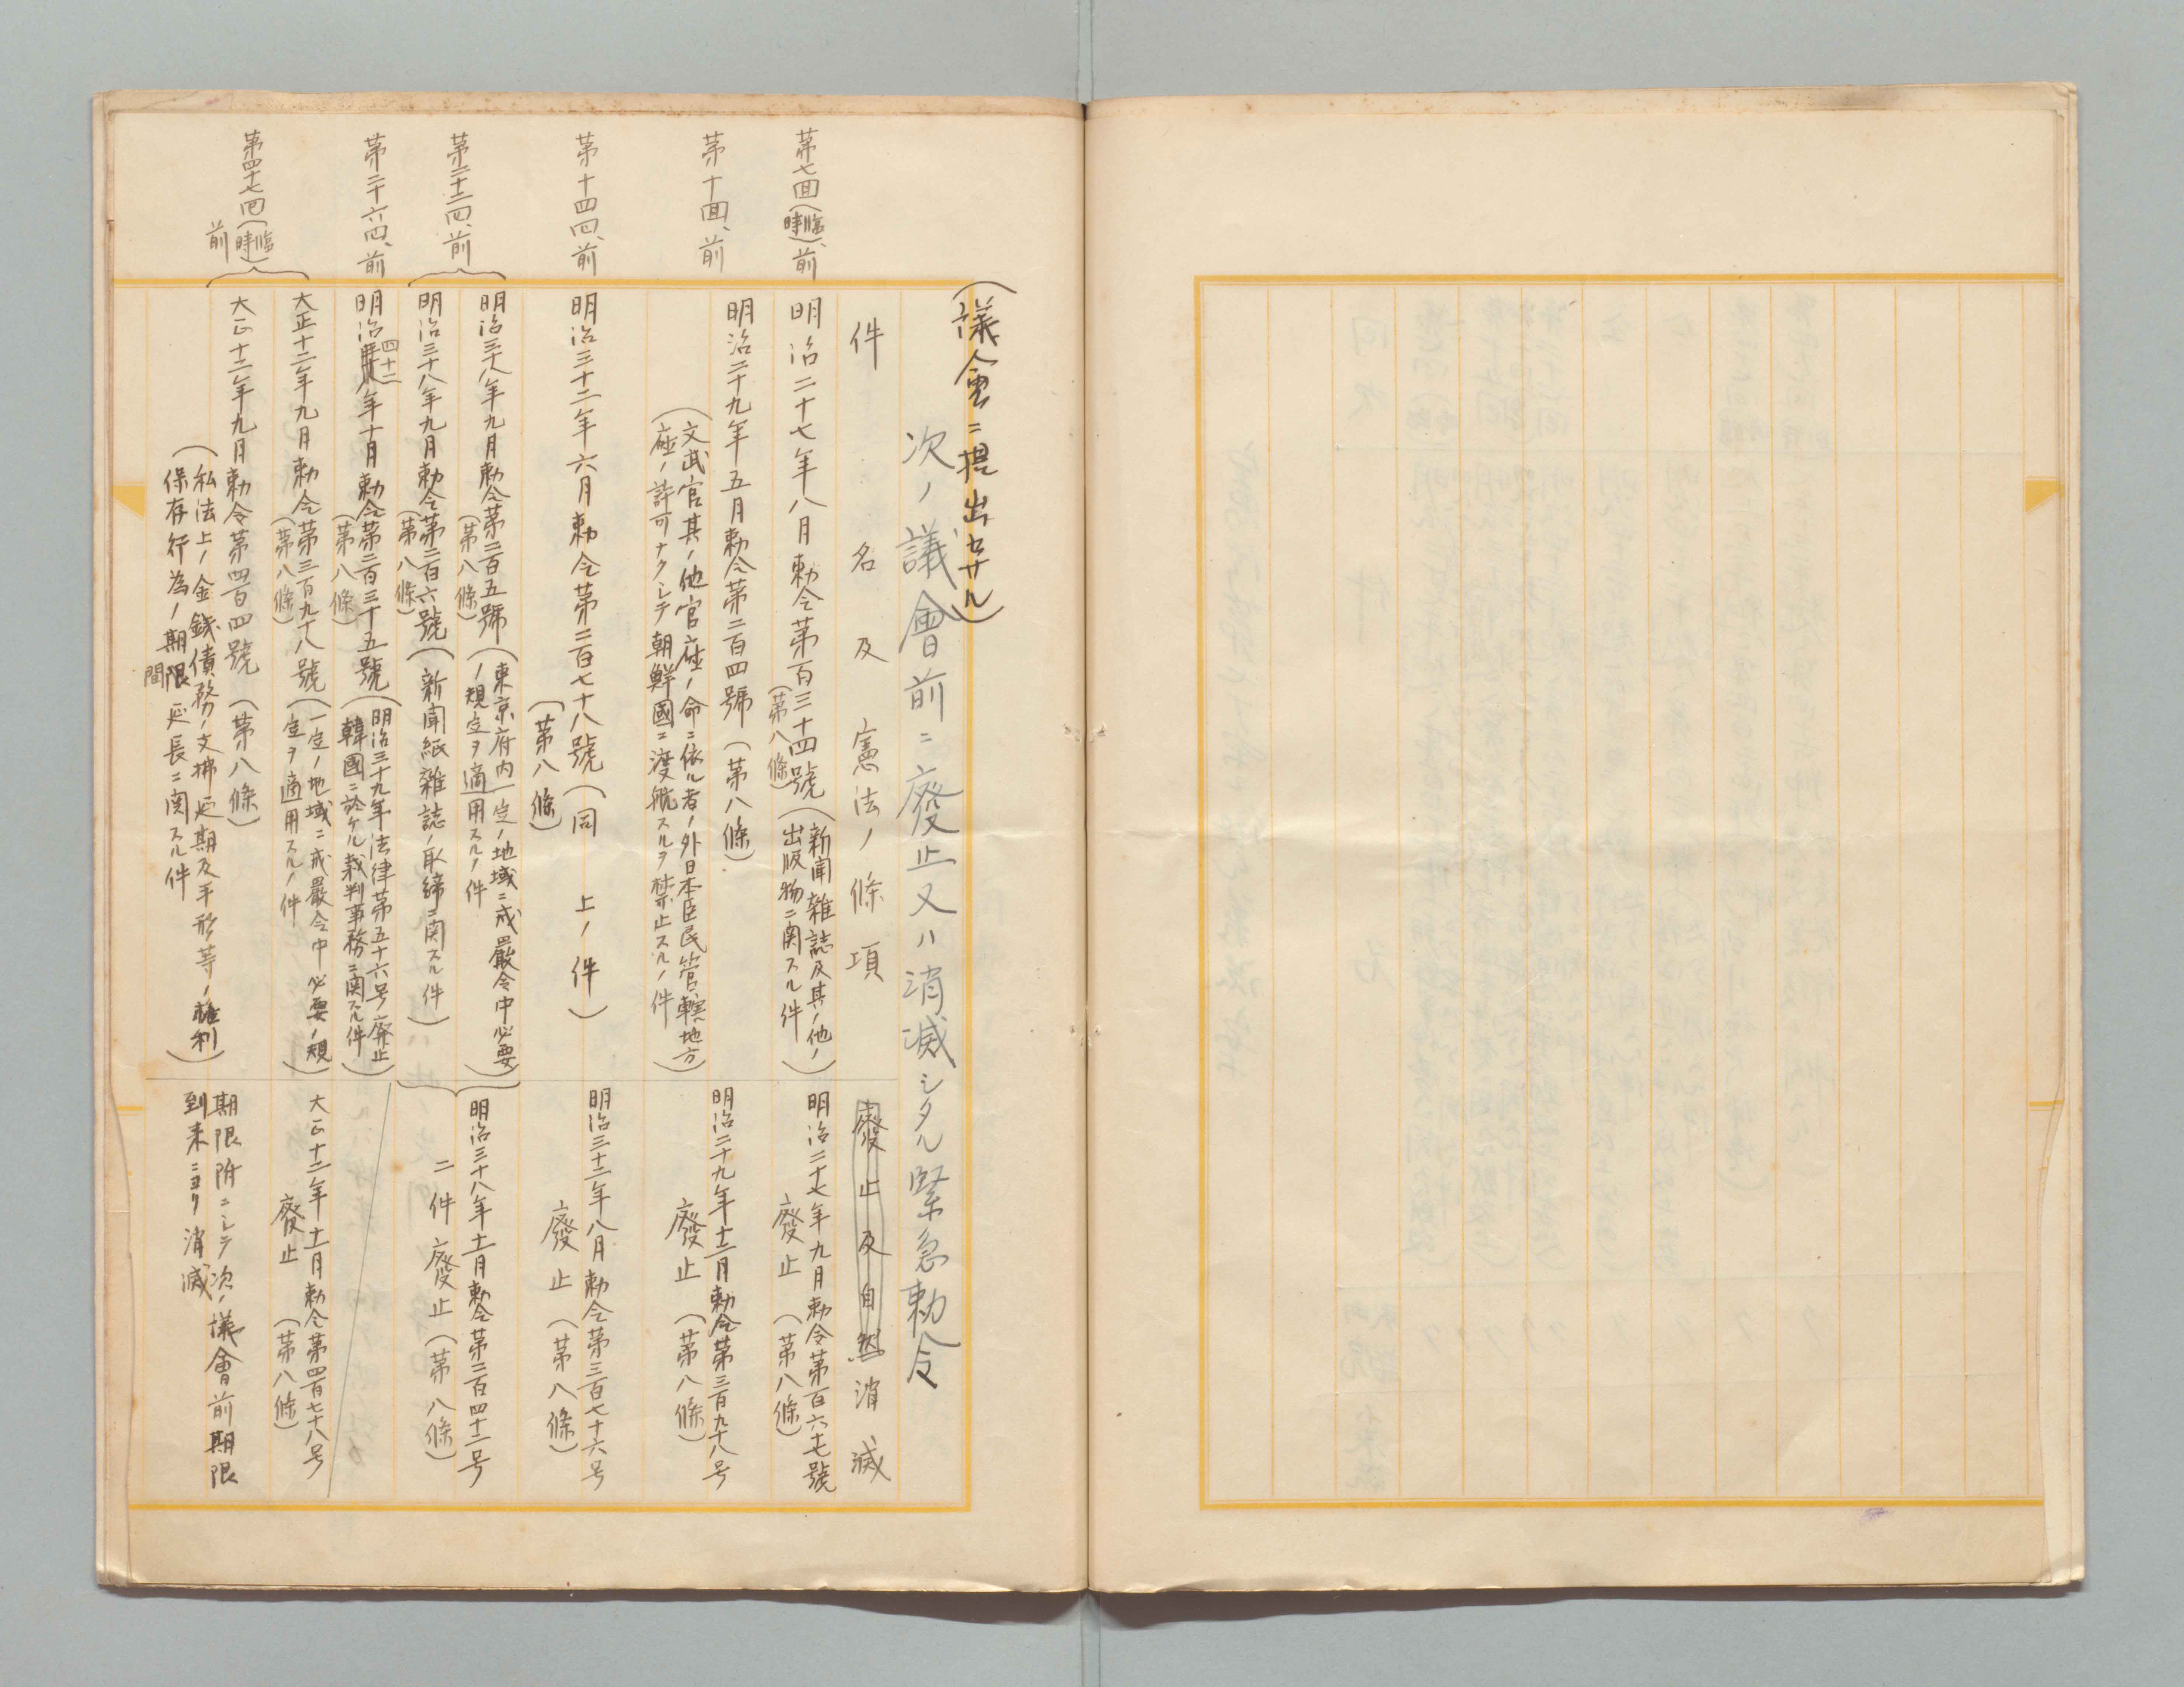 (議會ニ提出セザル)
次ノ議會前ニ廢止又ハ消滅シタル緊急勅令
件名及憲法ノ條項
廢止及自然消滅
第七回(臨時)、前
明治二十七年八月勅令第百三十四號
(第八條)
(新聞雜誌及其ノ他ノ
出版物ニ関スル件)
明治二十七年九月勅令第百六十七號
廢止(第八條)
第十回、前
明治二十九年五月勅令第二百四號(第八條)
(文武官其ノ他官廳ノ命ニ依ル者ノ外日本臣民管轄地方
廳ノ許可ナクシテ朝鮮國ニ渡航スルヲ禁止スルノ件)
明治二十九年十二月勅令第三百九十八号
廢止(第八條)
第十四回、前
明治三十二年六月勅令第二百七十八號(同上ノ件)
(第八條)
明治三十二年八月勅令第三百七十六号
廢止(第八條)
第二十二回、前
明治三十八年九月勅令第二百五號
(第八條)
(東京府内一定ノ地域ニ戒嚴令中必要
ノ規定ヲ適用スルノ件)
明治三十八年九月勅令第二百六號(新聞紙雜誌ノ取締ニ関スル件)
(第八條)
明治三十八年十一月勅令第二百四十二号
二件廢止(第八條)
第二十六回、前
明治四十二年十月勅令第二百三十五號
(第八條)
(明治三十九年法律第五十六号廃止
韓國ニ於ケル裁判事務ニ関スル件)
第四十七回(臨時)
前
大正十二年九月勅令第三百九十八號
(第八條)
(一定ノ地域ニ戒嚴令中必要ノ規
定ヲ適用スルノ件)
大正十二年十一月勅令第四百七十八号
廢止(第八條)
大正十二年九月勅令第四百四號(第八條)
(私法上ノ金錢債務ノ支拂延期及手形等ノ権利
保存行為ノ期限延長ニ関スル件)
間
期限附ニシテ次ノ議會前期限
到来ニヨリ消滅